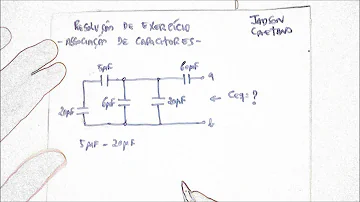 RESOLUÇÃO DE EXERCÍCIO
- ASSOCIAÇÃO DE CAPACITORES -
JADSON
CAETANO
5µF
60µF
a
20µF
6µF
20µF
← Ceq = ?
b
5µF - 20µF